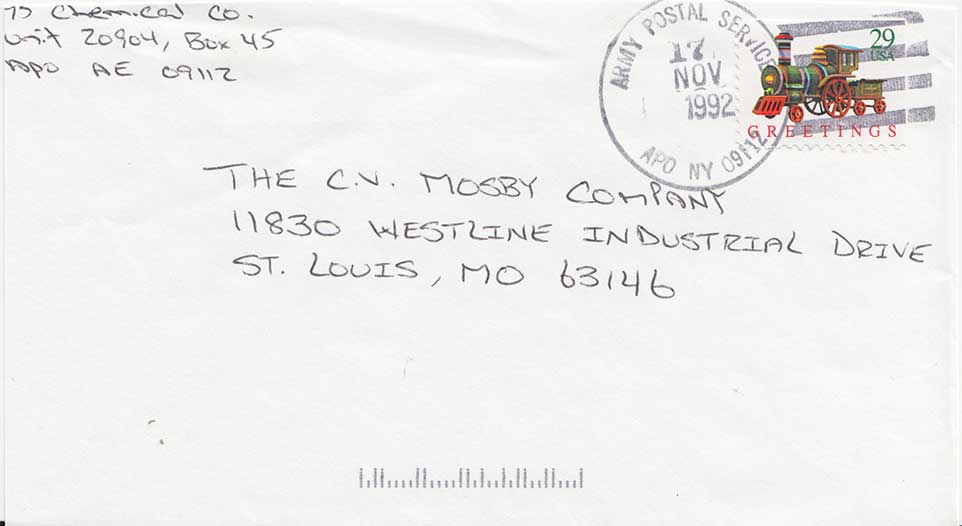 Chemical Co.
Unit 20904, Box 45
APO AE 09112
ARMY POSTAL SERVICE
17
NOV
1992
APO NY 09112
29
USA
GREETINGS
THE C.V. MOSBY COMPANY
11830 WESTLINE INDUSTRIAL DRIVE
ST. LOUIS, MO 63146